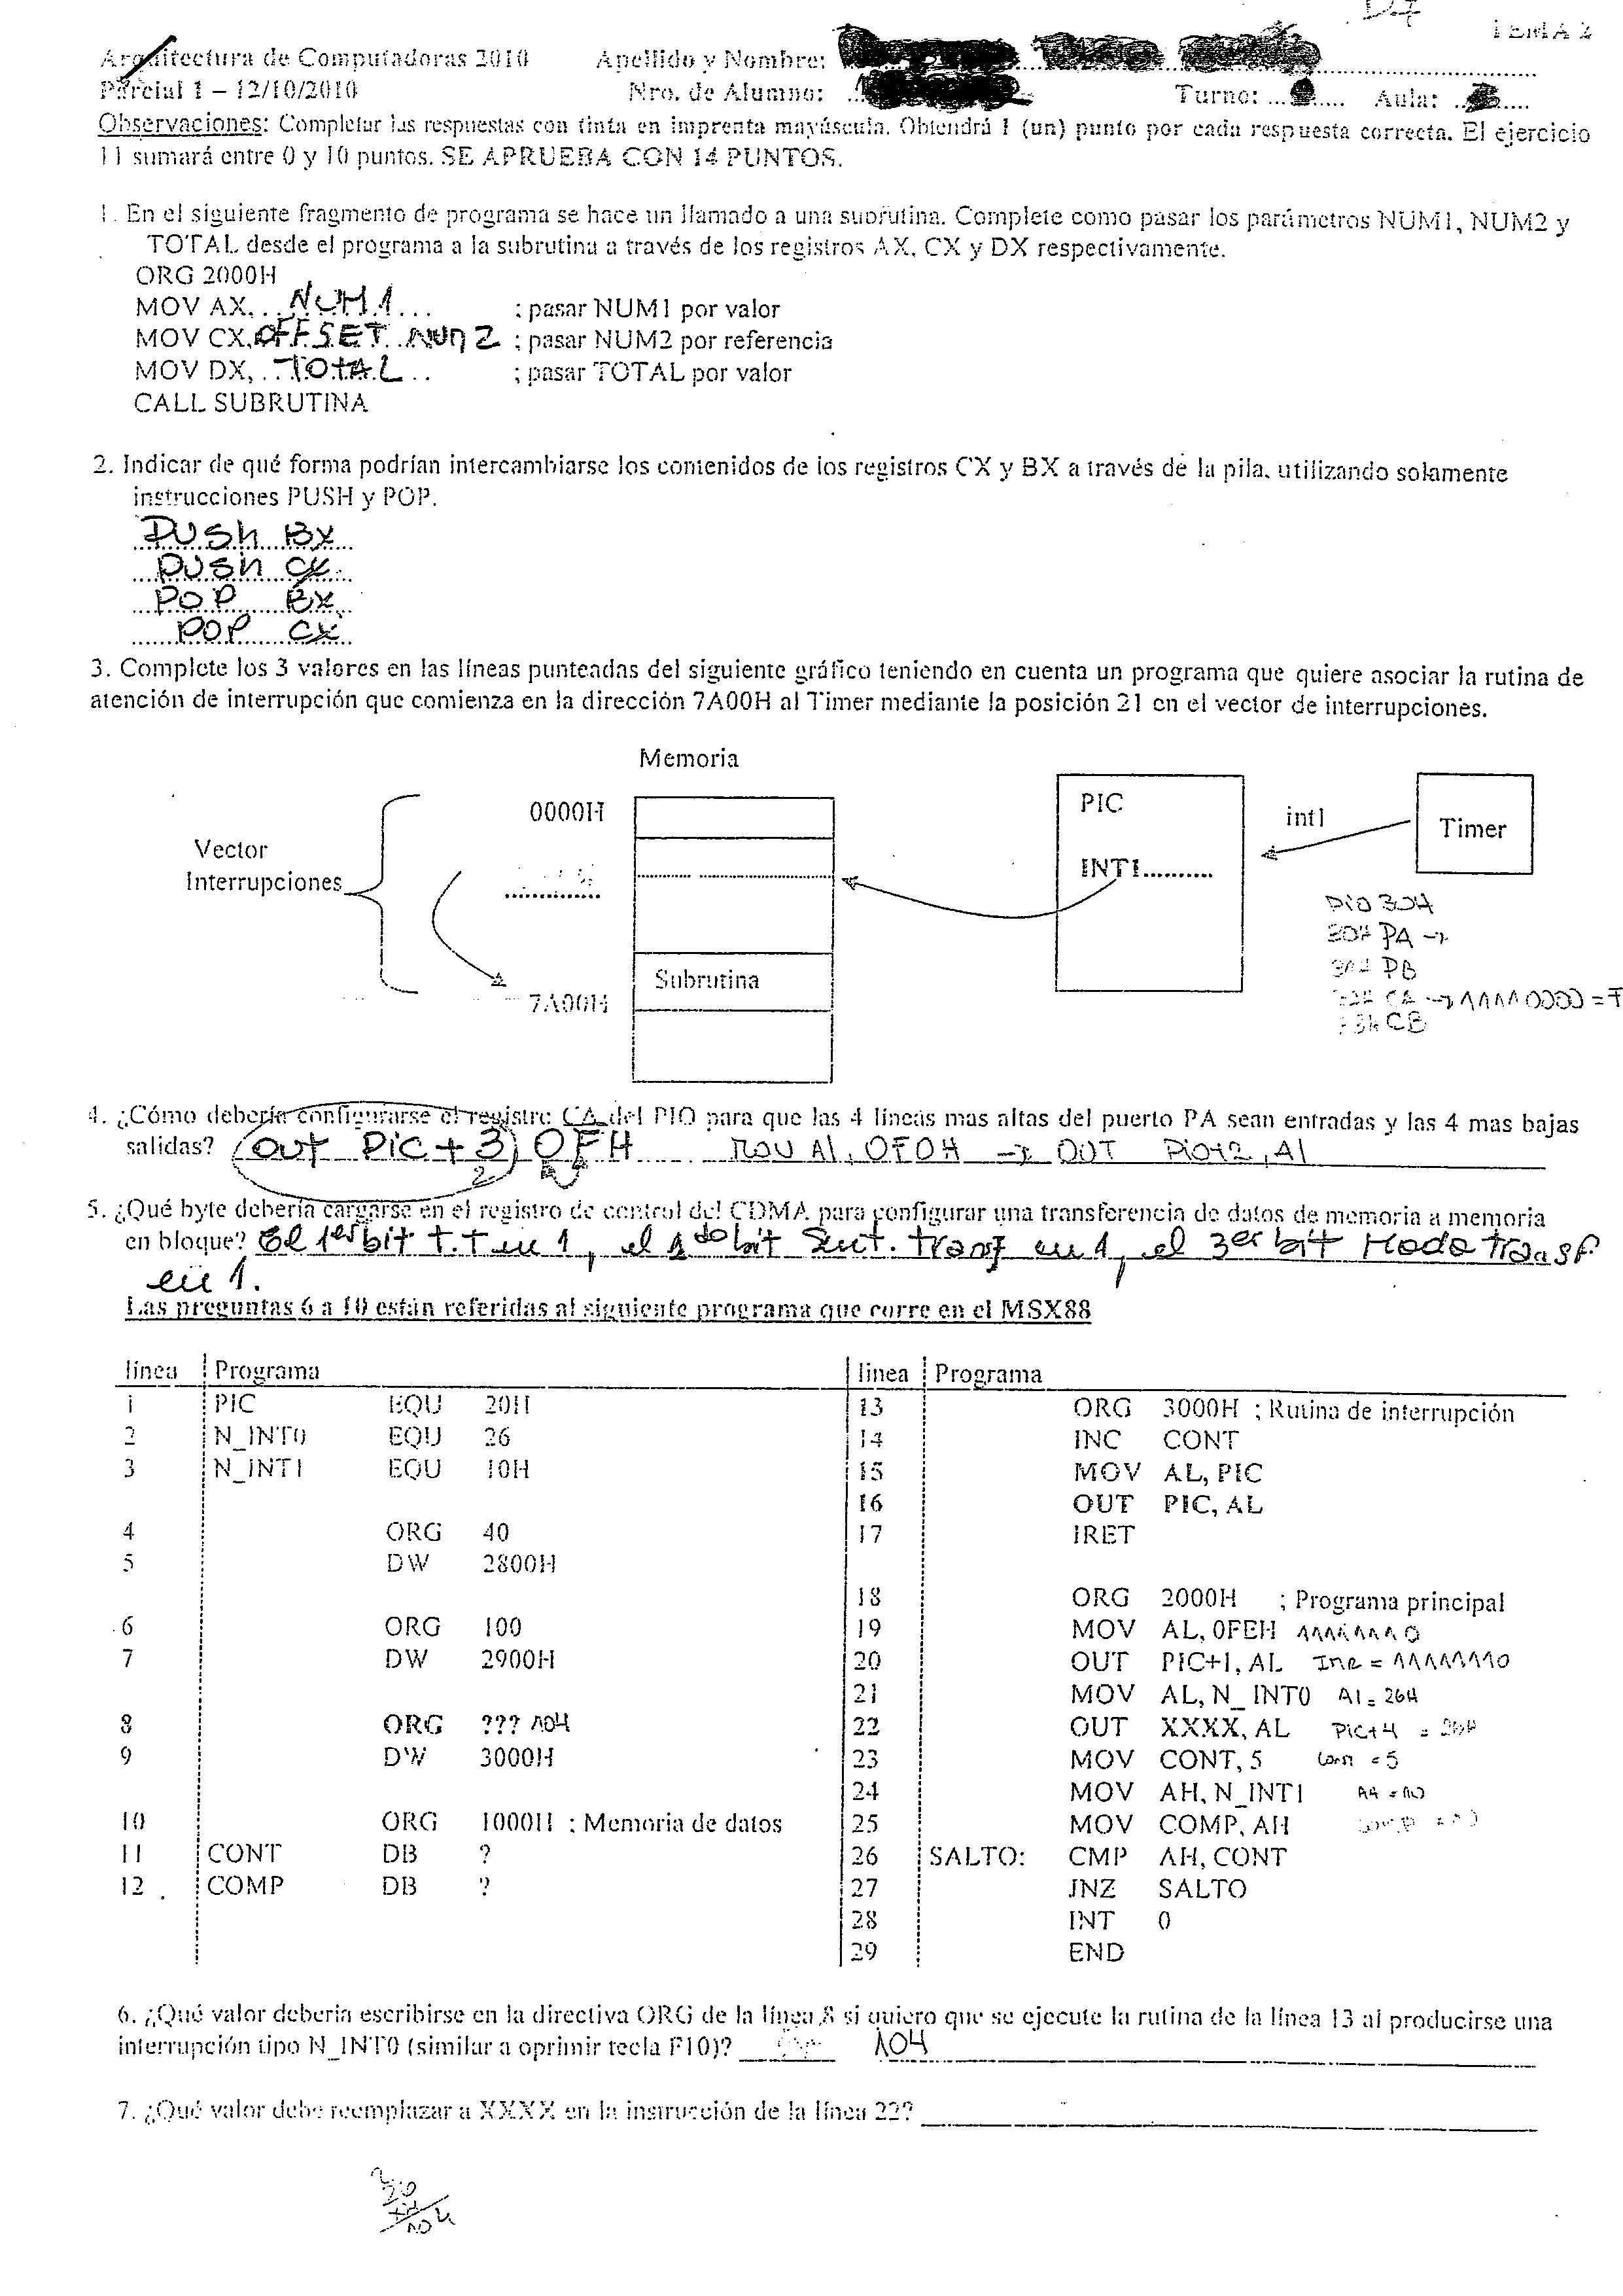 TEMA 2
Arquitectura de Computadoras 2010 Apellido y Nombre:
Parcial 1 – 12/10/2010 Nro. de Alumno: Turno: Aula:
Observaciones: Completar las respuestas con tinta en imprenta mayúscula. Obtendrá 1 (un) punto por cada respuesta correcta. El ejercicio
11 sumará entre 0 y 10 puntos. SE APRUEBA CON 14 PUNTOS.
1. En el siguiente fragmento de programa se hace un llamado a una subrutina. Complete como pasar los parámetros NUM1, NUM2 y
TOTAL desde el programa a la subrutina a través de los registros AX, CX y DX respectivamente.
ORG 2000H
MOV AX, NUM1 ; pasar NUM1 por valor
MOV CX, OFFSET NUM2 ; pasar NUM2 por referencia
MOV DX, TOTAL ; pasar TOTAL por valor
CALL SUBRUTINA
2. Indicar de qué forma podrían intercambiarse los contenidos de los registros CX y BX a través de la pila, utilizando solamente
instrucciones PUSH y POP.
PUSH BX
PUSH CX
POP BX
POP CX
3. Complete los 3 valores en las líneas punteadas del siguiente gráfico teniendo en cuenta un programa que quiere asociar la rutina de
atención de interrupción que comienza en la dirección 7A00H al Timer mediante la posición 21 en el vector de interrupciones.
Memoria
0000H
PIC
int1
Timer
Vector
Interrupciones
INT1..........
Subrutina
7A00H
PIO 30H
30H PA →
PB
CA → 11110000 = F
CB
4. ¿Cómo debería configurarse el registro CA del PIO para que las 4 líneas mas altas del puerto PA sean entradas y las 4 mas bajas
salidas? OUT PIC+3, 0FH MOV Al, 0F0H → OUT PIO+2, Al
2
5. ¿Qué byte debería cargarse en el registro de control del CDMA para configurar una transferencia de datos de memoria a memoria
en bloque? El 1er bit T.T en 1, el 2do bit Sent. transf en 1, el 3er bit Modo transf
en 1.
Las preguntas 6 a 10 están referidas al siguiente programa que corre en el MSX88
línea Programa
1 PIC EQU 20H
2 N_INT0 EQU 26
3 N_INT1 EQU 10H
4 ORG 40
5 DW 2800H
6 ORG 100
7 DW 2900H
8 ORG ??? 104
9 DW 3000H
10 ORG 1000H ; Memoria de datos
11 CONT DB ?
12 COMP DB ?
linea Programa
13 ORG 3000H ; Rutina de interrupción
14 INC CONT
15 MOV AL, PIC
16 OUT PIC, AL
17 IRET
18 ORG 2000H ; Programa principal
19 MOV AL, 0FEH 11111110
20 OUT PIC+1, AL = 11111110
21 MOV AL, N_INT0 Al = 26H
22 OUT XXXX, AL PIC+4 = 26H
23 MOV CONT, 5 Cont = 5
24 MOV AH, N_INT1 AH = 10
25 MOV COMP, AH
26 SALTO: CMP AH, CONT
27 JNZ SALTO
28 INT 0
29 END
6. ¿Qué valor debería escribirse en la directiva ORG de la línea 8 si quiero que se ejecute la rutina de la línea 13 al producirse una
interrupción tipo N_INT0 (similar a oprimir tecla F10)? 104
7. ¿Qué valor debe reemplazar a XXXX en la instrucción de la línea 22?